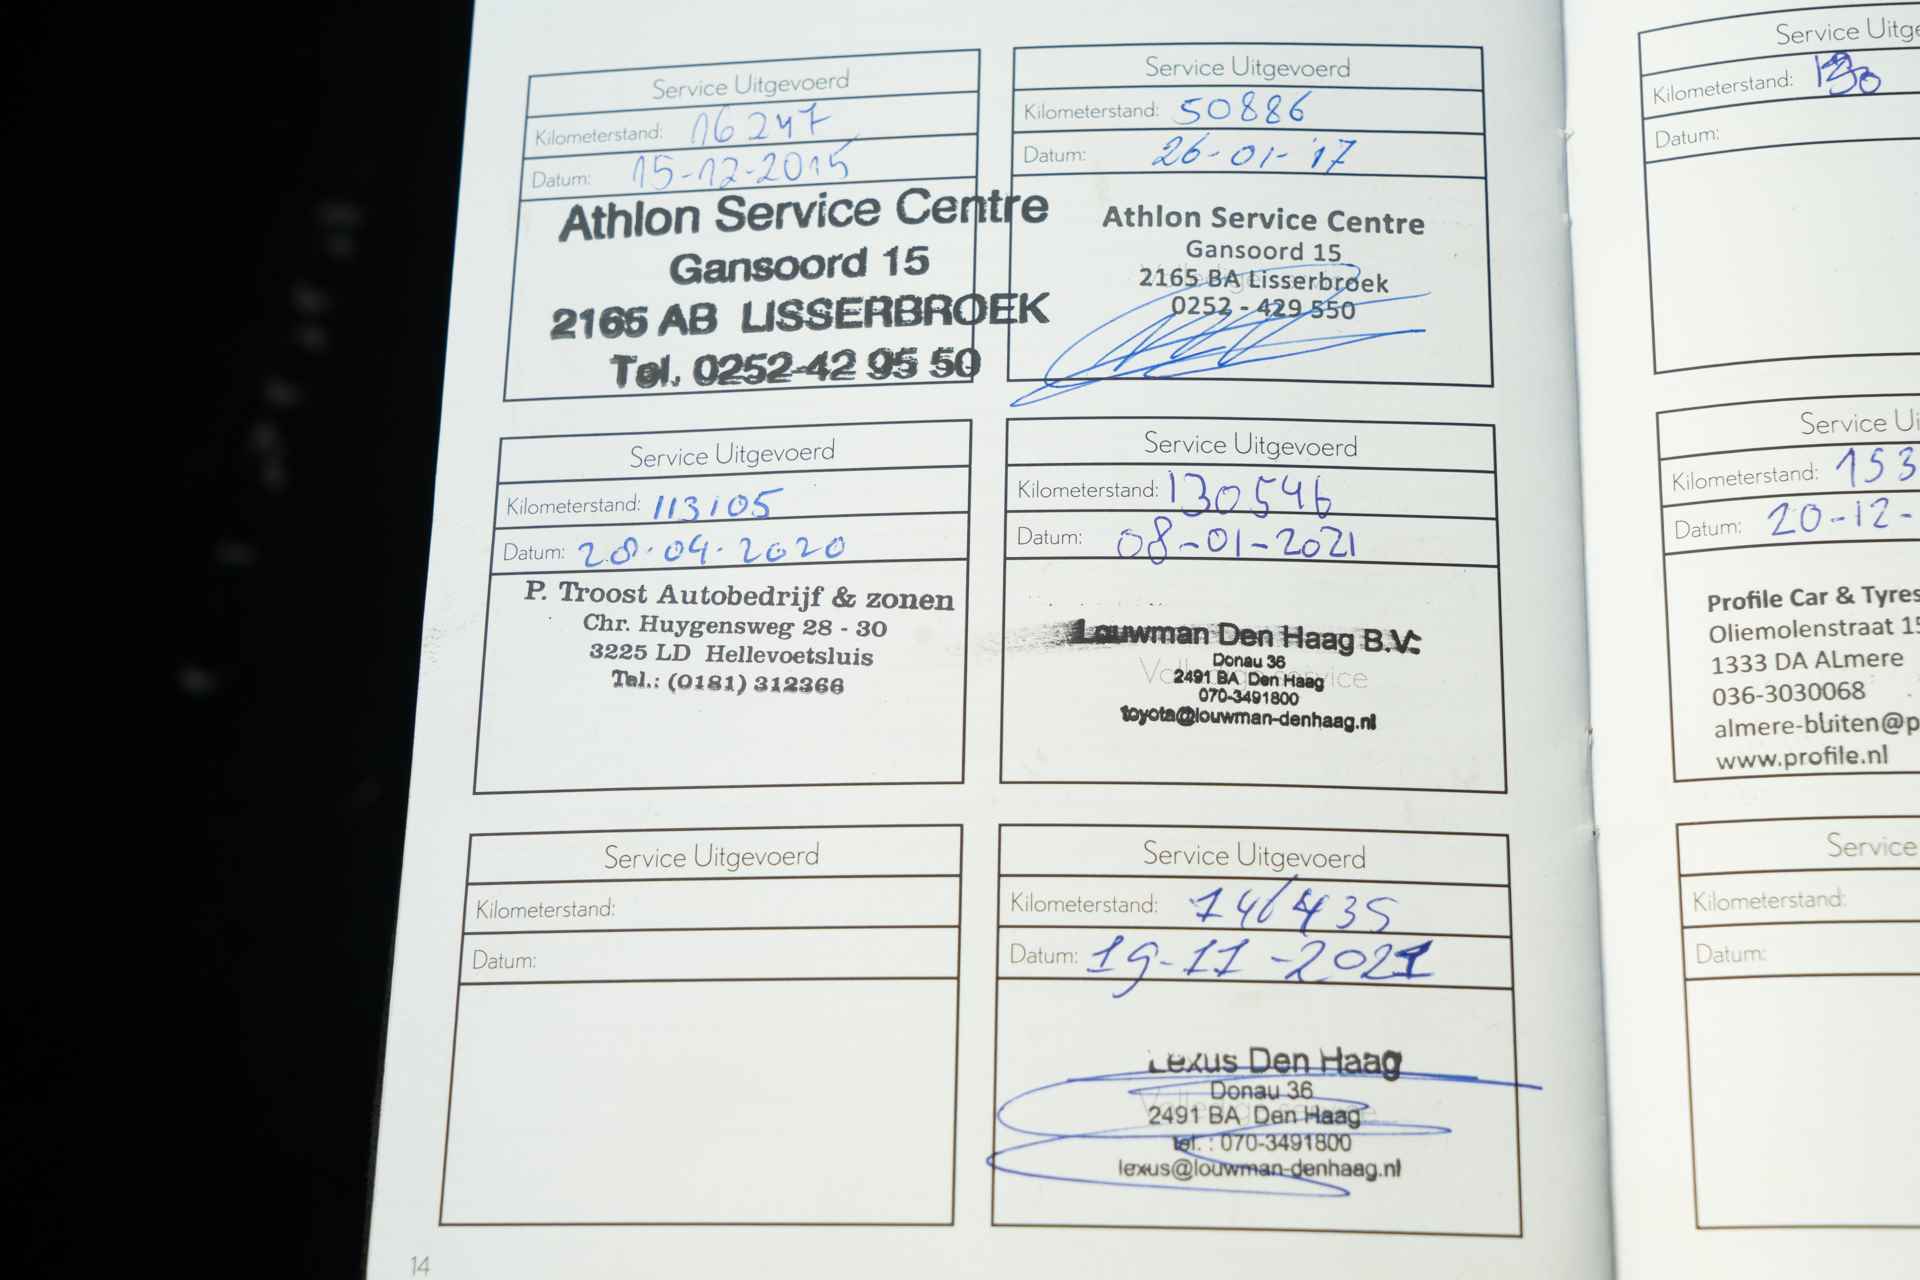 Service Uitgevoerd
Kilometerstand: 16247
Datum: 15-12-2015
Athlon Service Centre
Gansoord 15
2165 AB LISSERBROEK
Tel. 0252-42 95 50
Service Uitgevoerd
Kilometerstand: 50886
Datum: 26-01-'17
Athlon Service Centre
Gansoord 15
2165 BA Lisserbroek
0252 - 429 550
Service Uitgevoerd
Kilometerstand: 113105
Datum: 28-04-2020
P. Troost Autobedrijf & zonen
Chr. Huygensweg 28 - 30
3225 LD Hellevoetsluis
Tel.: (0181) 312366
Service Uitgevoerd
Kilometerstand: 130546
Datum: 08-01-2021
Louwman Den Haag B.V.
Donau 36
2491 BA Den Haag
070-3491800
toyota@louwman-denhaag.nl
Service Uitgevoerd
Kilometerstand:
Datum:
Service Uitgevoerd
Kilometerstand: 141435
Datum: 19-11-2021
Lexus Den Haag
Donau 36
2491 BA Den Haag
tel. : 070-3491800
lexus@louwman-denhaag.nl
14
Service Uitge
Kilometerstand:
Datum:
Service Ui
Kilometerstand: 153
Datum: 20-12-
Profile Car & Tyres
Oliemolenstraat 15
1333 DA ALmere
036-3030068
almere-buiten@p
www.profile.nl
Service
Kilometerstand:
Datum: